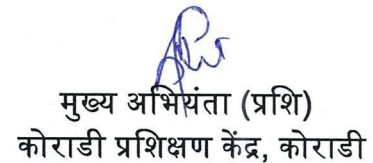 मुख्य अभियंता (प्रशि)
कोराडी प्रशिक्षण केंद्र, कोराडी